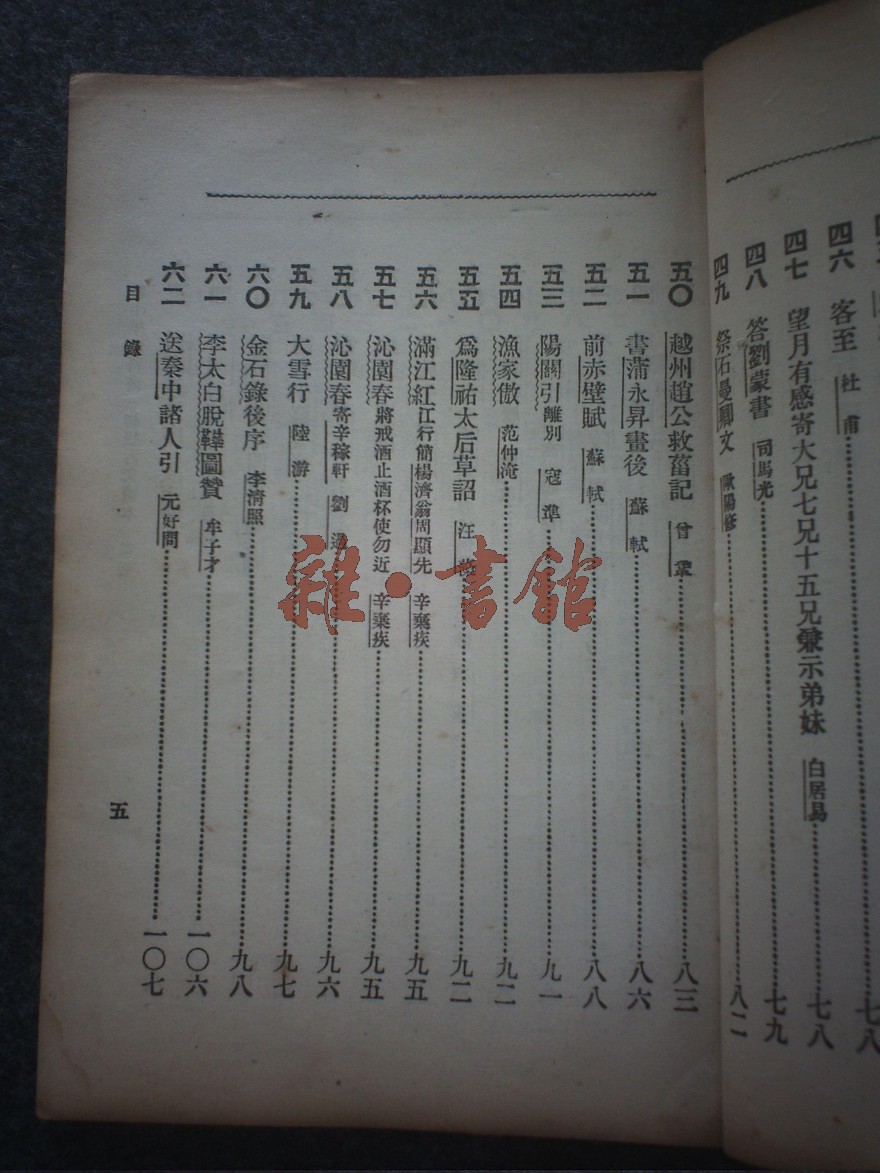 四六 客至 杜甫 七八
四七 望月有感寄大兄七兄十五兄兼示弟妹 白居易 七八
四八 答劉蒙書 司馬光 七九
四九 祭石曼卿文 歐陽修 八二
五〇 越州趙公救菑記 曾鞏 八三
五一 書蒲永昇畫後 蘇軾 八六
五二 前赤壁賦 蘇軾 八八
五三 陽關引離別 寇準 九一
五四 漁家傲 范仲淹 九二
五五 爲隆祐太后草詔 汪 九二
五六 滿江紅江行簡楊濟翁周顯先 辛棄疾 九五
五七 沁園春將戒酒止酒杯使勿近 辛棄疾 九五
五八 沁園春寄辛稼軒 劉過 九六
五九 大雪行 陸游 九七
六〇 金石錄後序 李清照 九八
六一 李太白脫鞾圖贊 牟子才 一〇六
六二 送秦中諸人引 元好問 一〇七
目錄
五
雜·書館